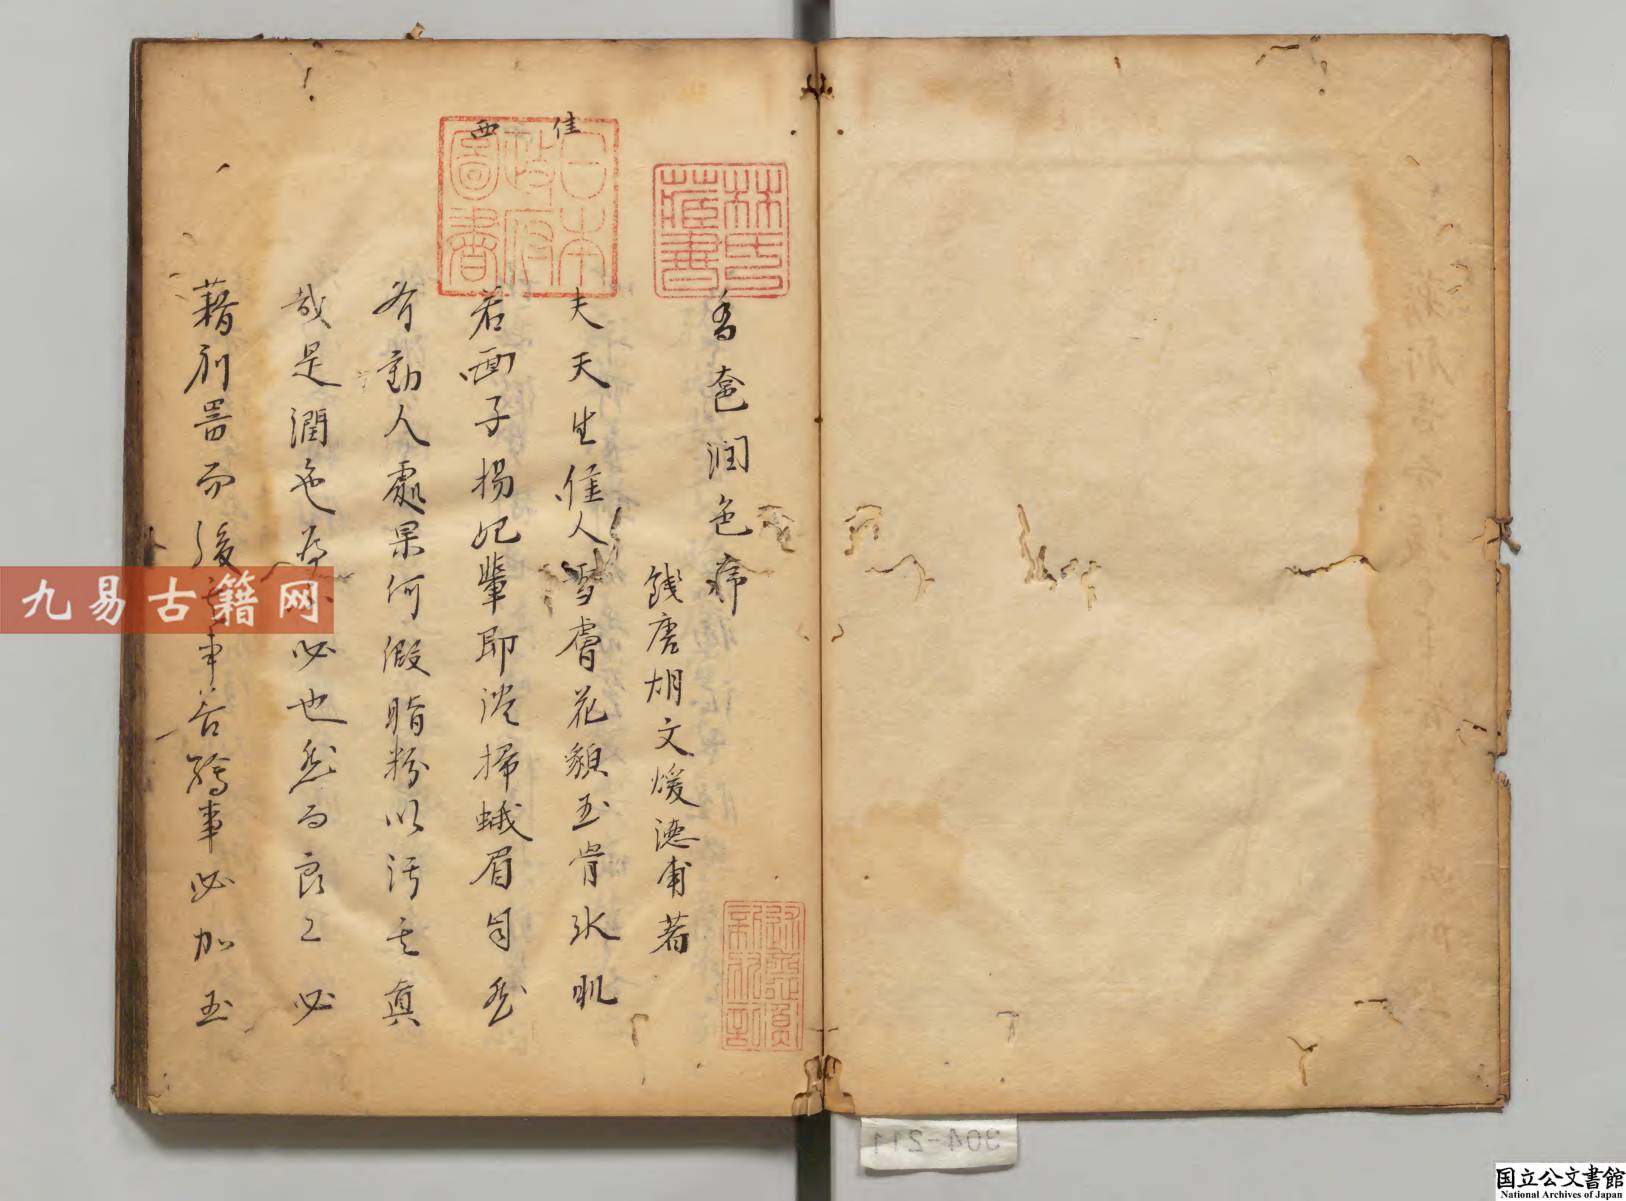 佳
西
日本政府圖書
林氏藏書
香奩润色序
錢唐胡文煥德甫著
夫天生隹人雪膚花貌玉骨氷肌
若西子楊妃輩即淡掃蛾眉自然
有動人處果何假脂粉以汚其真
哉是潤色爲不必也然而良工必
藉利器而後事善繪事必加玉
九易古籍网
304-211
国立公文書館
National Archives of Japan